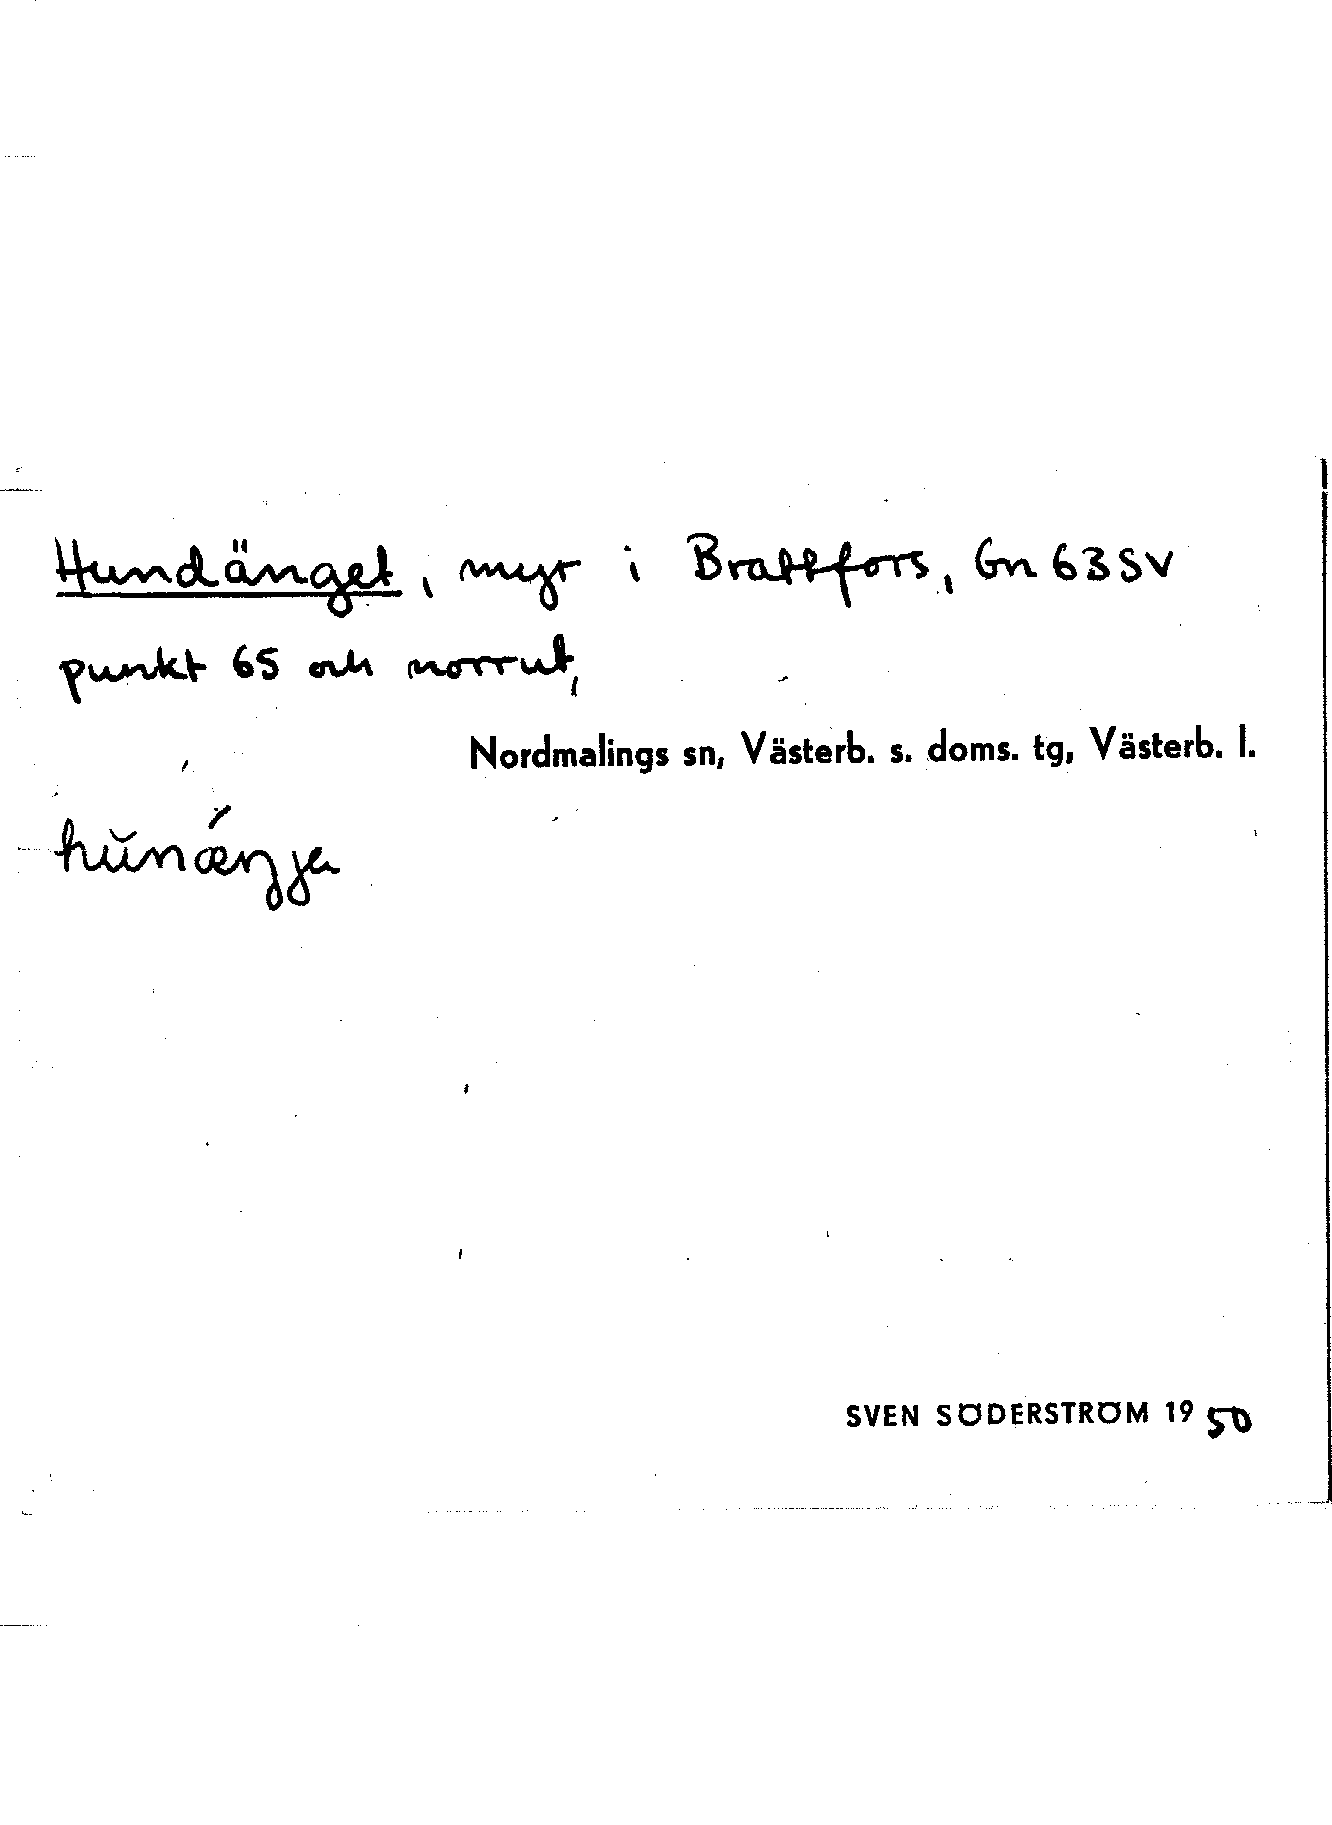 Hundänget, myr i Brattfors, Gn 63 SV
punkt 65 och norrut,
Nordmalings sn, Västerb. s. doms. tg, Västerb. l.
hŭnǽŋja
SVEN SÖDERSTRÖM 1950